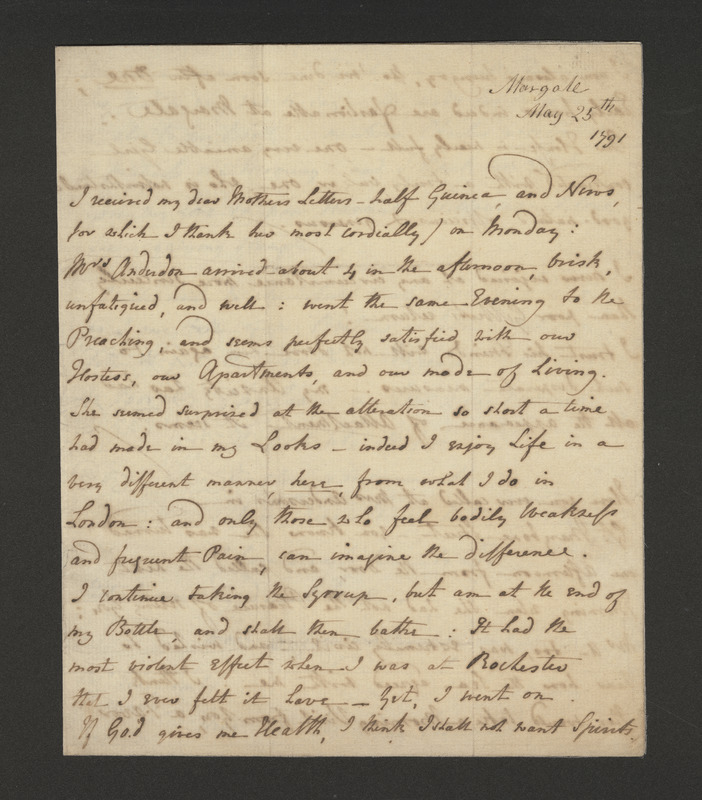 Margate
May 25th
1791
I received my dear Mothers Letters - half Guinea, and News,
for which I thank her most cordially) on Monday:
Mrs Anderdon arrived about 4 in the afternoon, brisk,
unfatigued, and well: went the same Evening to the
Preaching, and seems perfectly satisfied with our
Hostess, our Apartments, and our mode of Living.
She seemed surprized at the alteration so short a time
had made in my Looks - indeed I enjoy Life in a
very different manner, here, from what I do in
London: and only those who feel bodily Weakness
and frequent Pain, can imagine the difference.
I continue taking the Syrrup, but am at the end of
my Bottle, and shall then bathe: It had the
most violent Effect when I was at Rochester
that I ever felt it have - Yet, I went on.
If God gives me Health, I think I shall not want Spirits,